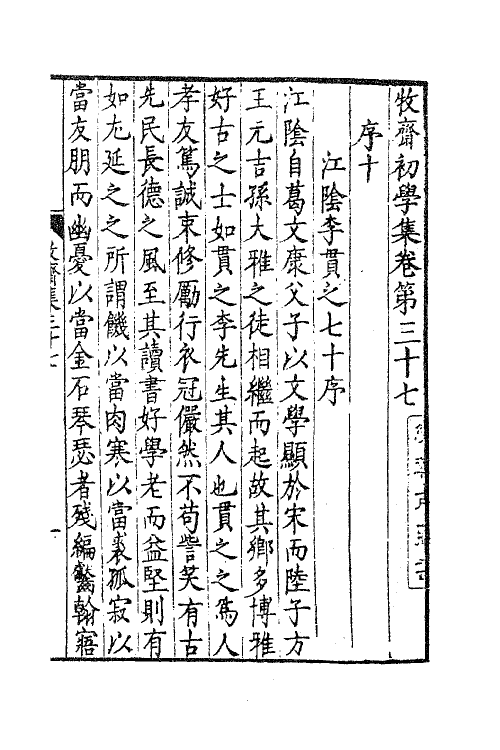 牧齋初學集卷第三十七
序十
江陰李貫之七十序
江陰自葛文康父子以文學顯於宋而陸子方
王元吉孫大雅之徒相繼而起故其鄉多博雅
好古之士如貫之李先生其人也貫之之爲人
孝友篤誠束修勵行衣冠儼然不苟訾笑有古
先民長德之風至其讀書好學老而益堅則有
如尤延之之所謂饑以當肉寒以當裘孤寂以
當友朋而幽憂以當金石琴瑟者殘編齾翰寤
牧齋集三十七
一